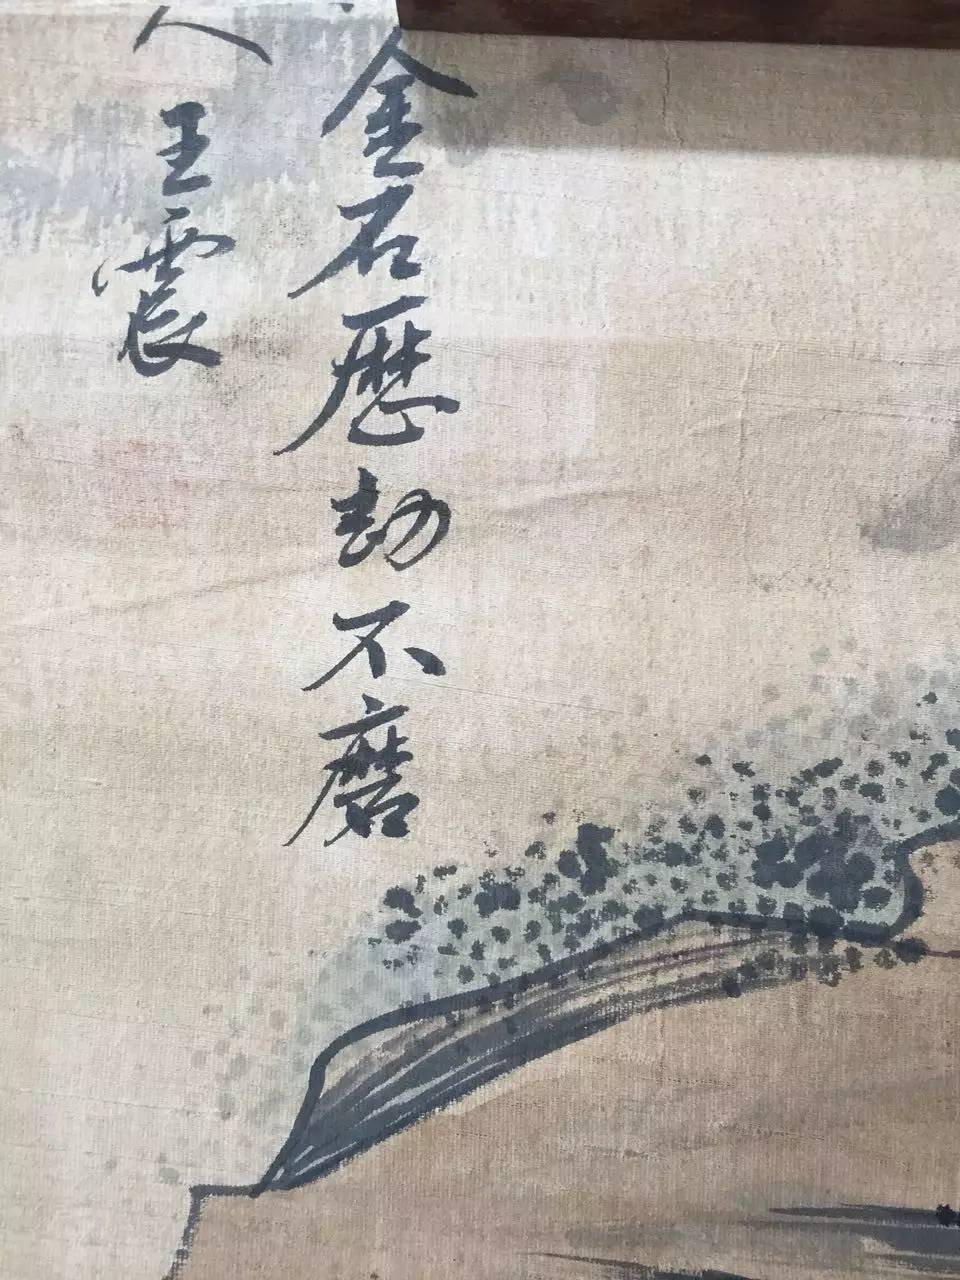 金石歷劫不磨
人王震